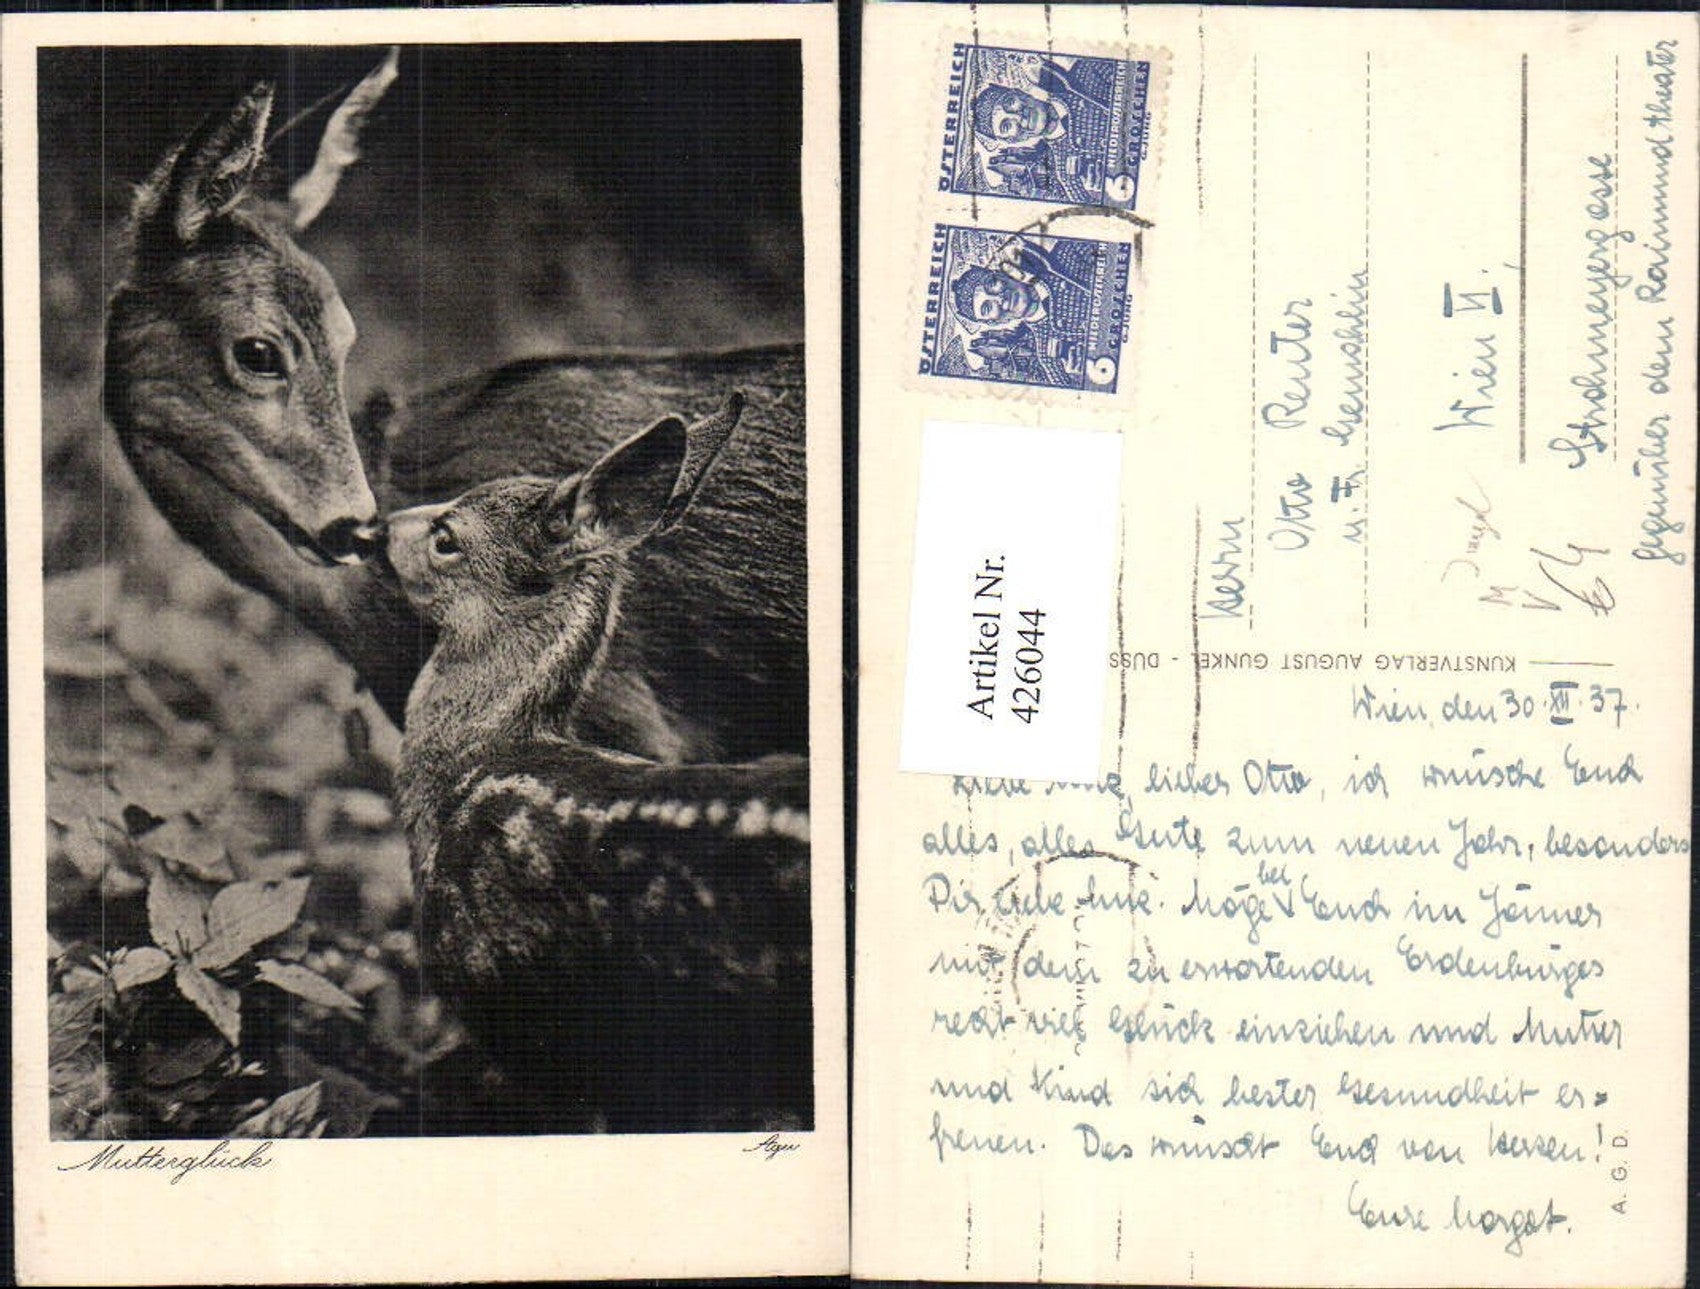 Mutterglück
Agu
ÖSTERREICH
NIEDERÖSTERREICH
6 GROSCHEN
G.JUNG
ÖSTERREICH
NIEDERÖSTERREICH
6 GROSCHEN
G.JUNG
Artikel Nr.
426044
Herrn
Otto Reuter
u. Fr. Gemahlin
Wien VI.
Strohmeyergasse
gegenüber dem Raimundtheater
KUNSTVERLAG AUGUST GUNKEL - DÜSS
Wien, den 30.XII.37.
Liebe lieber Otto, ich wünsche Euch
alles, alles Gute zum neuen Jahr, besonders
Dir, liebe Möge bei Euch im Jänner
mit dem zu erwartenden Erdenbürger
recht viel Glück einziehen und Mutter
und Kind sich bester Gesundheit er=
freuen. Das wünscht Euch von Herzen!
Eure Margot.
A. G. D.